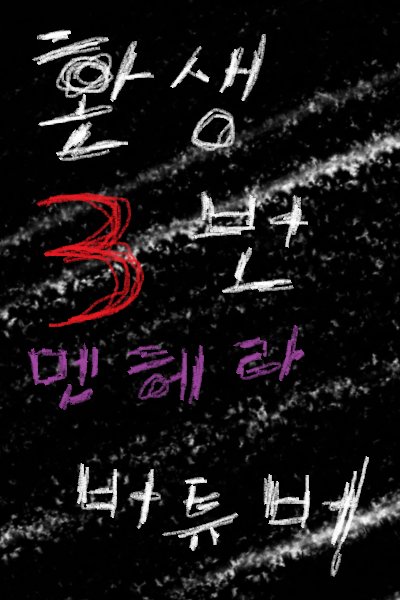 환생
3번
멘헤라
버튜버